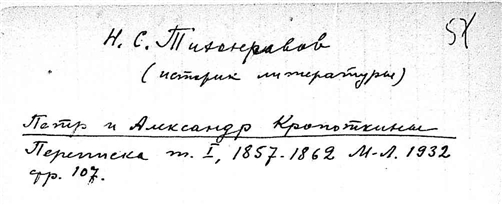 Н. С. Тихонравов
57
(историк литературы)
Петр и Александр Кропоткины
Переписка т. I, 1857-1862 М-Л. 1932
стр. 107.